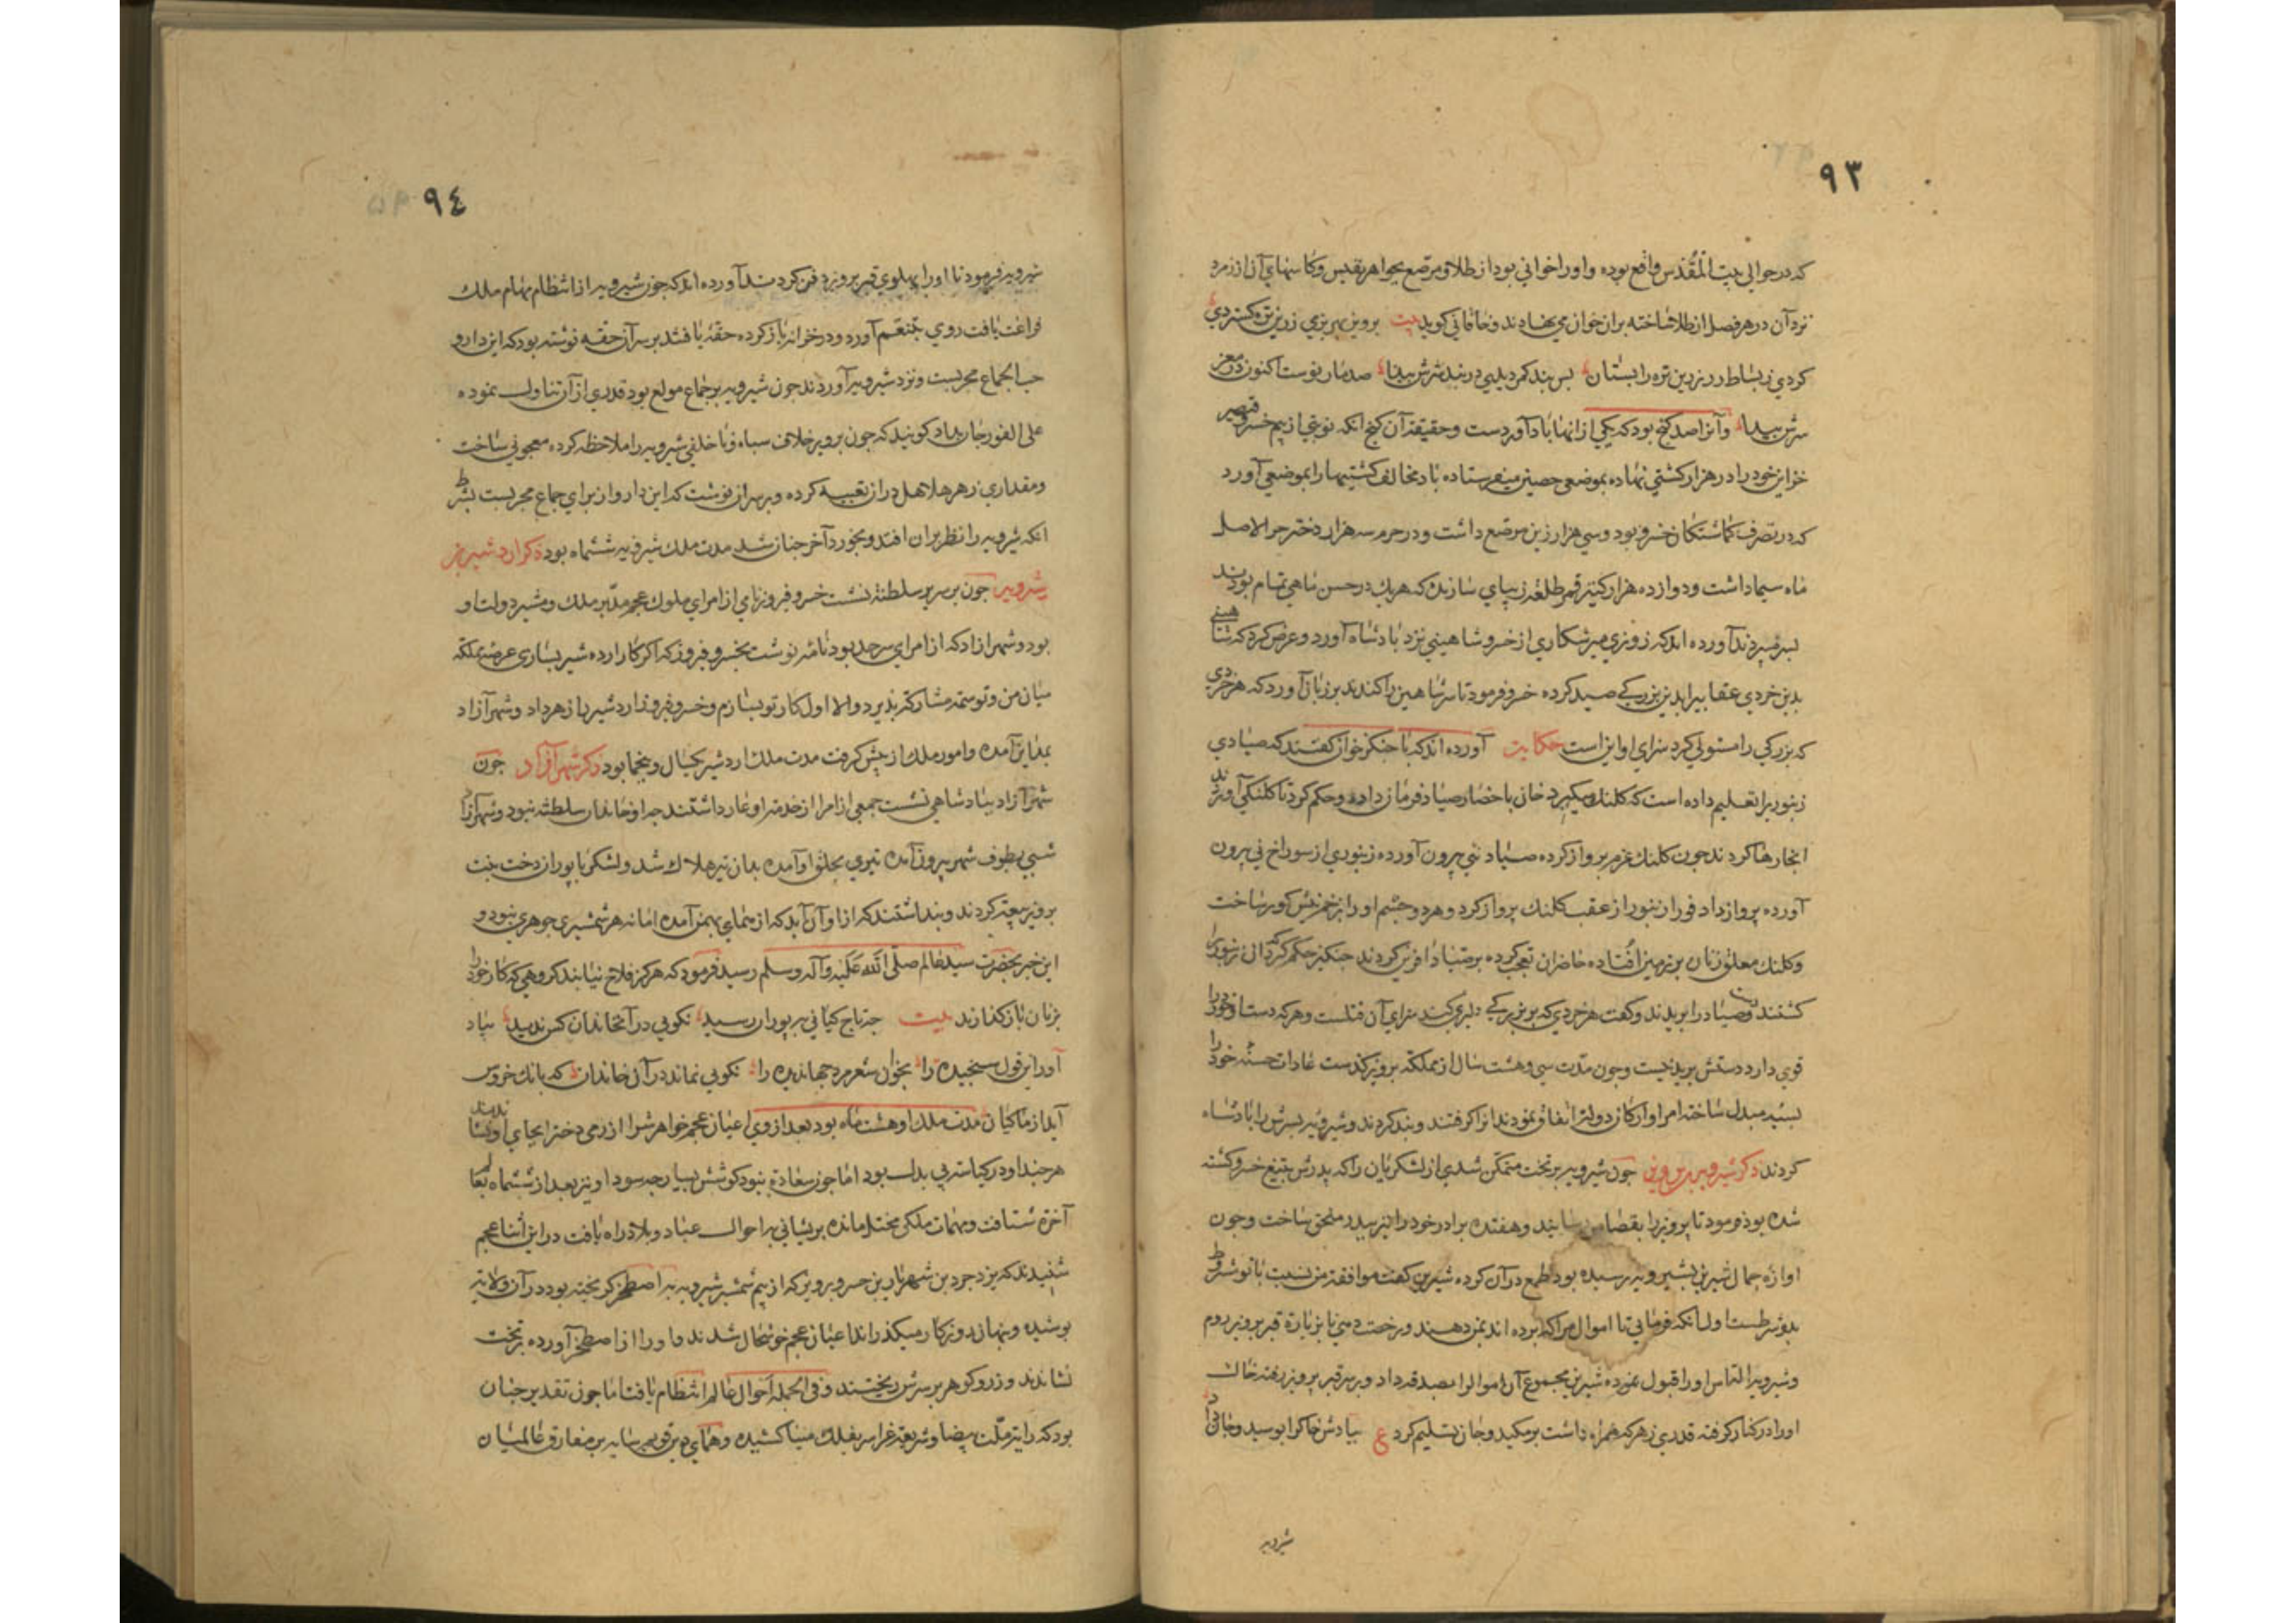 ٩٣
که در حوالي بیت المقدس واقع بوده واو را خواني بود از طلا و مرصّع بجواهر نفیس وکاسهاي آن از زمرد
نرد آن در هر فصل از طلا ساخته بران خوان مي نهادند وخاقاني کوید بیت پرویز بهر بزمي زرین تره کستردي
کردي ز بساط زر زرین تره را بستان بس پند کمر دیدي در پند سرش پیدا صد پند نوست اکنون در مغز
سرش پیدا وآنرا صد کنج بود که یکي از انها باد آوردست وحقیقت آن کنج انکه نوبتي از بیم خسرو قیصر
خزاین خود را در هزار کشتي نهاده بموضعي حصین میفرستاده باد مخالف کشتیها را بموضعي آورد
که در تصرف کماشتکان خسرو بود وسي هزار زین مرصّع داشت ودر حرم سه هزار دختر حر الاصل
ماه سیما داشت ودوازده هزار کنیز قمر طلعه زیباي سازنده که هر یک در حسن ماهي تمام بودند
بسر میبردند آورده اند که روزي میر شکاري از خسرو شاهیني نزد پادشاه آورد وعرض کرد که شاهیني
بدین خردي عقابیرا بدین بزرکي صید کرده خسرو فرمود تا سر شاهین را کندند بر زبان آورد که هر خردي
که بزرکي را مستولي کرد سزاي او این است حکایت آورده اند که با جنکز خوان کفتند که صیادي
زنبوریرا تعلیم داده است که کلنک میکیرد خان باحضار صیاد فرمان داده وحکم کرد تا کلنکي آوردند
انجا رها کردند چون کلنک عزم پرواز کرده صیاد نیي بیرون آورده زنبوري از سوراخ ني بیرون
آورده پرواز داد فورا زنبور از عقب کلنک پرواز کرد وهر دو چشم او را بزخم نیش کور ساخت
وکلنک معلق زنان بر زمین افتاده حاضران تعجب کرده بر صیاد آفرین کردند جنکیز حکم کرد که آن زنبور را
کشتند ودست صیاد را بریدند وکفت هر خردي که بر بزرکي دلیري کند سزاي آن قتلست وهر که دست از خود را
قوي دارد دستش بریدنیست وچون مدّت سي وهشت سال از مملکة پرویز کذشت عادات حسنه خود را
بسیئه مبدل ساخته امرا وارکان دولت اتفاق نمودند او را کرفتند وبند کردند وشیرویه پسرش را پادشاه
کردند ذکر شیرویه بن پرویز چون شیرویه بر تخت متمکن شد یکي از لشکریان را که پدرش بتیغ خسرو کشته
شده بود فرمود تا پرویز را بقصاص رسانید وهفده برادر خود را نیز بپدر ملحق ساخت وچون
اوازه جمال شیرین بشیرویه رسیده بود طمع در آن کرده شیرین کفت موافقة من نسبت با تو مشروط
بدو شرطست اول انکه فرمایي تا اموال مرا که برده اند بمن دهند ورخصت دهي تا بزیارة قبر پرویز روم
وشیرویه التماس او را قبول نموده شیرین مجموع آن اموال را بصدقه داد وبر سر قبر پرویز رفته خاک
او را در کنار کرفته قدري زهر که همراه داشت برمکید وجان تسلیم کرد ع بیادش خاک را بوسید وجان داد
شیرویه
٩٤
شیرویه فرمود تا او را پهلوي قبر پرویز دفن کردند آورده اند که چون شیرویه از انتظام مهام ملک
فراغت یافت روي بتنعم آورد ودر خزانه باز کرده حقه یافتند بر سر آن حقه نوشته بود که این دارو
حب الجماع مجربست ونزد شیرویه آوردند چون شیرویه بر جماع مولع بود قدري از آن تناول نموده
علي الفور جان بداد کویند که چون پرویز خلاف سپاه وناخلفي شیرویه را ملاحظه کرده معجوني ساخت
ومقداري زهر هلاهل در آن تعبیه کرده وبر سر آن نوشت که این دارو از براي جماع مجربست بشرط
انکه شیرویه را نظر بران افتد وبخورد آخر چنان شد مدت ملک شیرویه ششماه بود ذکر اردشیر بن
شیرویه چون بر سریر سلطنة نشست خسرو فیروز نامي از امراي ملوک عجم مدّبر ملک ومشیر دولت او
بود وشهر ازاد که از امراي سرحد بود نامه نوشت بخسرو فیروز که اکر کار ارده شیر بسازي عرصه مملکة
میان من وتو سمت مشارکة پذیرد والا اول کار تو بسازم وخسرو فیروز اردشیر را زهر داد وشهر آزاد
بمداین آمده وامور ملک از پیش کرفت مدت ملک اردشیر یکسال وپنجماه بود ذکر شهر آزاد چون
شهر آزاد بپادشاهي نشست جمعي از امرا از خدمت او عار داشتند چه او خاندان سلطنة نبود وشهر آزاد
شبي بطوف شهر بیرون آمده تیري بحلق او آمده بدان تیر هلاک شد ولشکر با پوران دخت بنت
پرویز بیعة کردند وپنداشتند که از او آن آید که از هماي بهمن آمده اما نه هر شمشیري جوهري بود و
این خبر بحضرت سید عالم صلّی اللّه علیه وآله وسلم رسید فرمود که هرکز فلاح نیابند کروهي که کار خود را
بزنان باز کذارند بیت چه تاج کیاني بپوران رسید نکویي در آن خاندان کس ندید بیاد
آور این قول سنجیده را بخوان شعر مرد جهاندیده را نکویي نماند در آن خاندان که بانک خروس
آید از ماکیان مدت ملک او هشت ماه بود بعد از وي اعیان عجم خواهرش را ازرمي دخترا بجاي او نشاندند
هر چند او در کیاست بي بدل بود اما چون سعادة نبود کوشش بسیار چه سود او نیز بعد از ششماه بعالم
آخرة شتافت ومهمات ملکي مختل مانده پریشاني باحوال عباد وبلاد راه یافت در این اثنا عجم
شنیدند که یزدجرد بن شهریار بن خسرو پرویز که از بیم شمشیر شیرویه به اصطخر کریخته بود در آن ولایة
پوشیده وپنهان روزکار میکذراند اعیان عجم خوشحال شدند واو را از اصطخر آورده بتخت
نشاندند وزر وکوهر بر سرش ریختند وفي الجمله احوال عالم انتظام یافت اما چون تقدیر چنان
بود که رایت ملّت بیضا وشریعة غرا سر بفلک مینا کشیده وهماي دین قویم سایه بر مفارق عالمیان